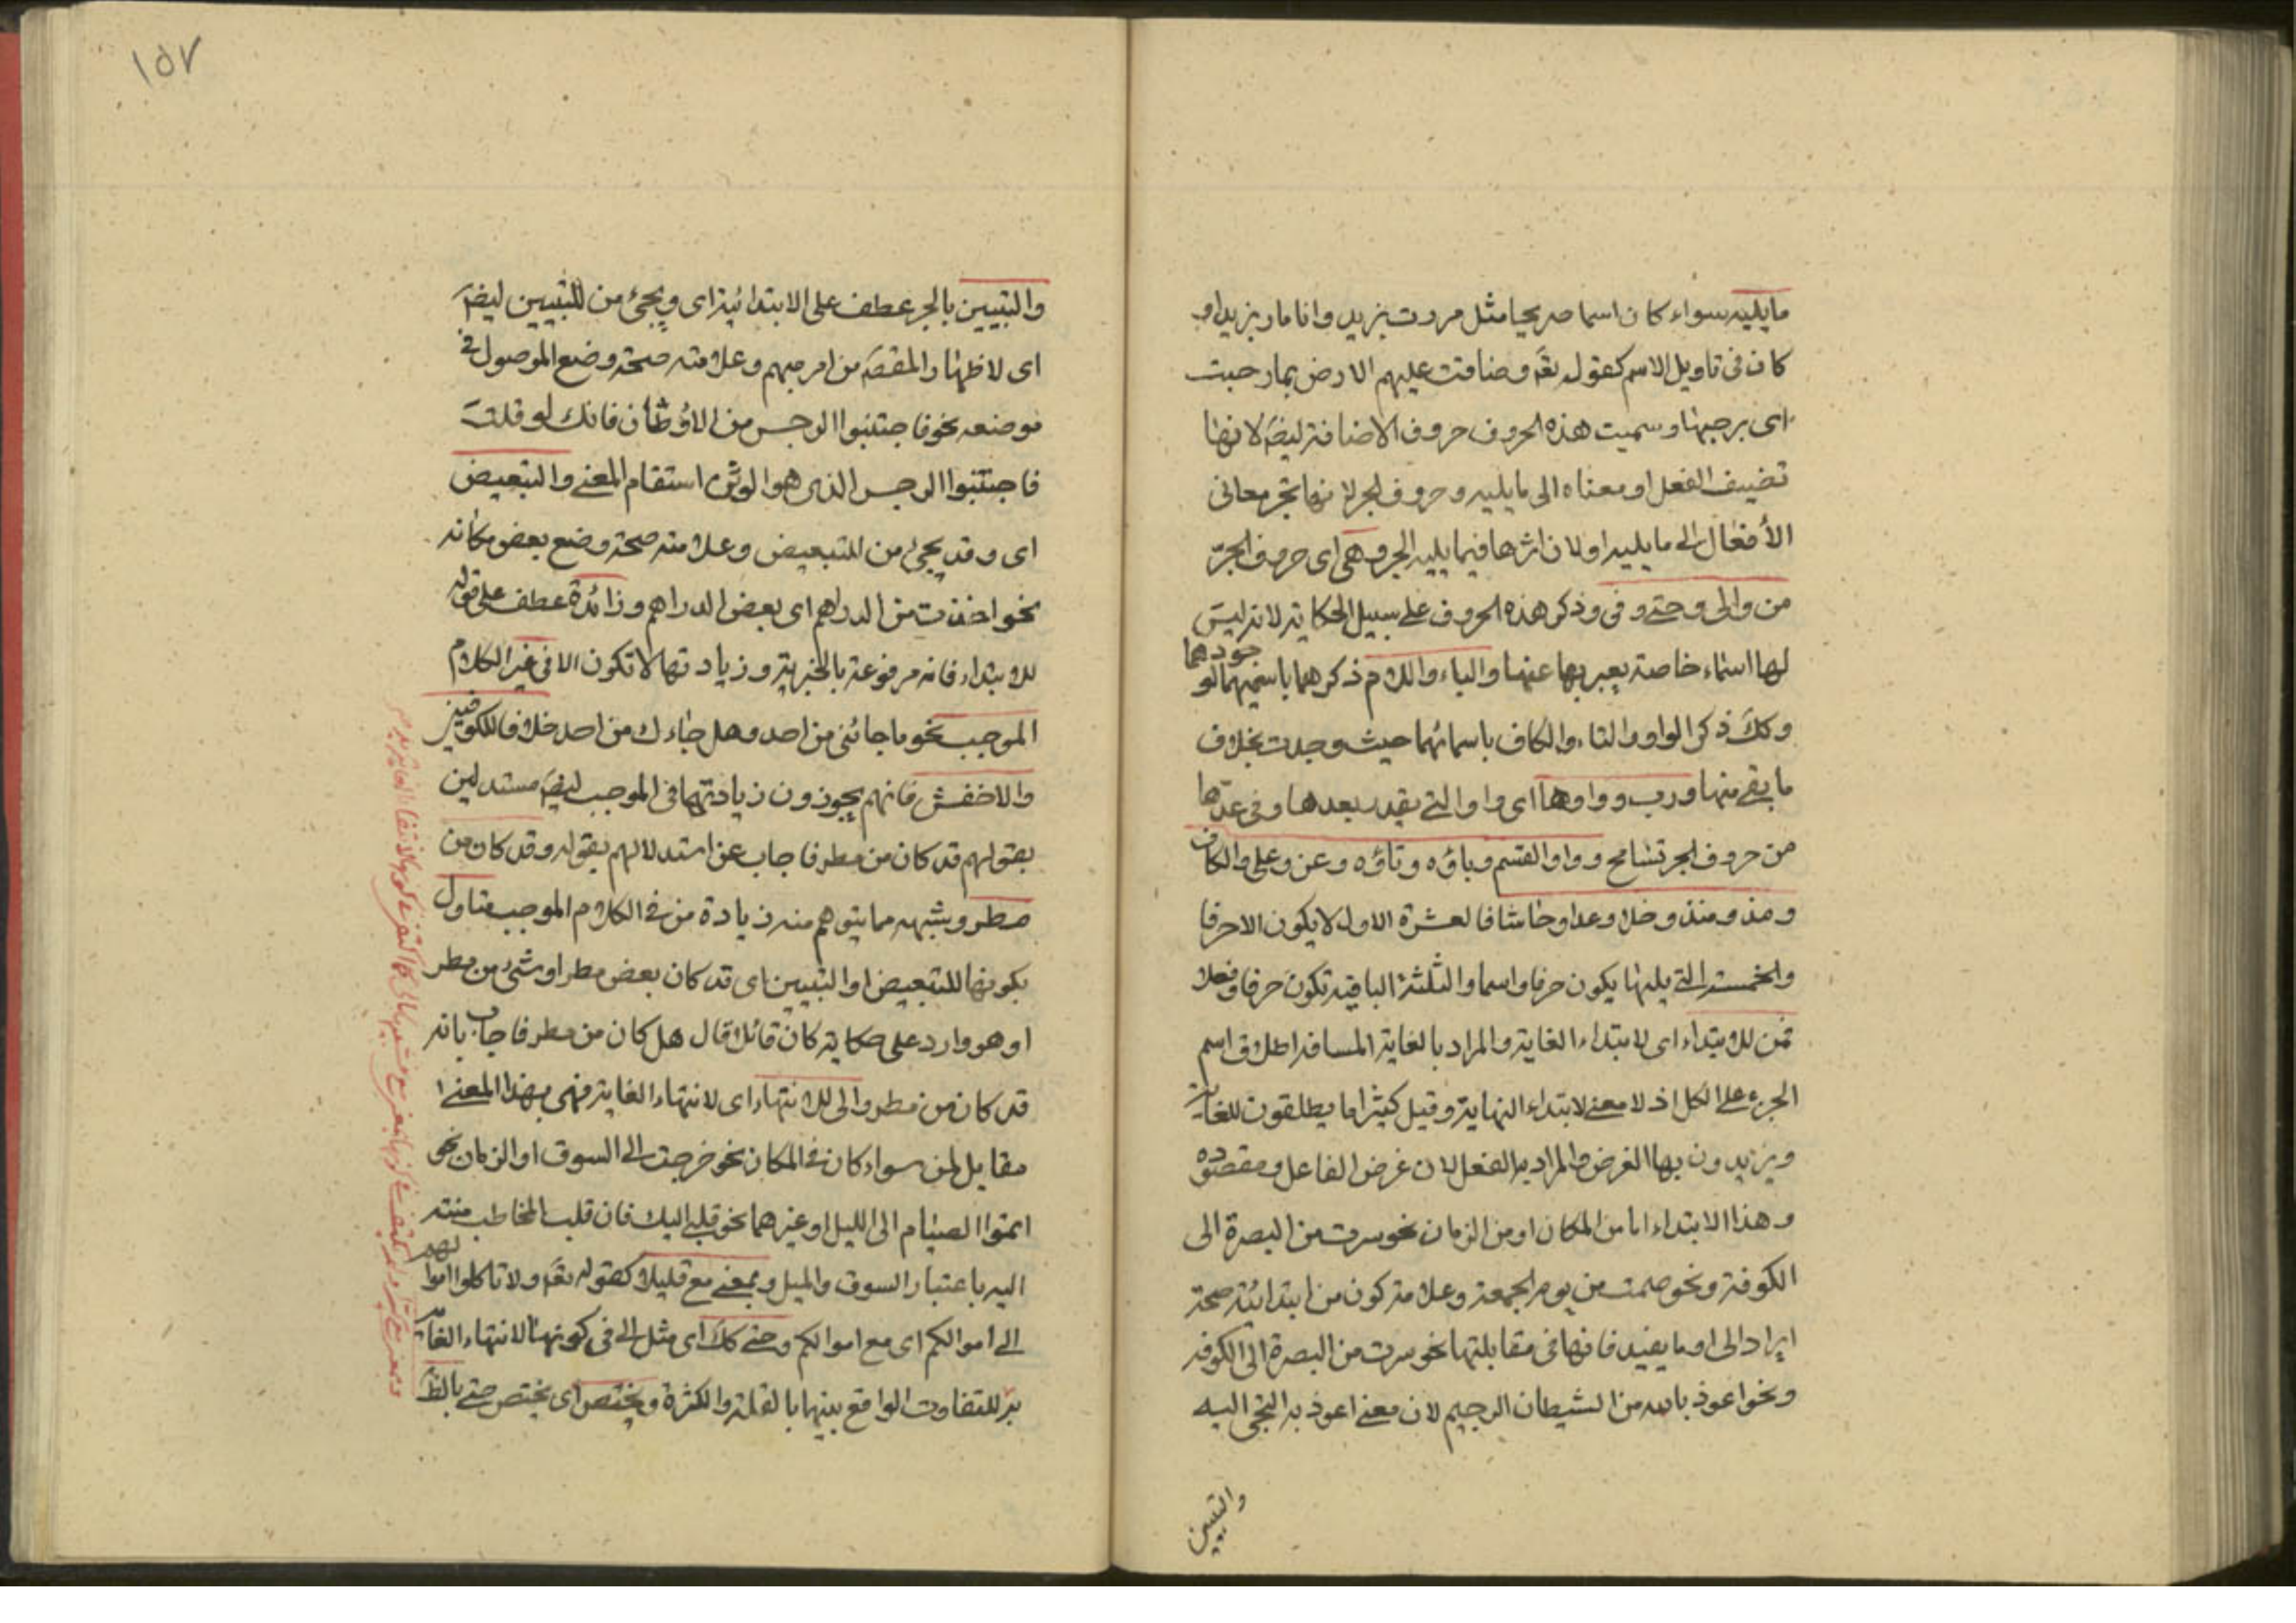 مايليه سواء كان اسما صريحا مثل مررت بزيد وانا مار بزيد او
كان فى تاويل الاسم كقوله تعَ وضاقت عليهم الارض بما رحبت
اى برحبها وسميت هذه الحروف حروف الاضافة ايضَ لانها
تضيف الفعل او معناه الى مايليه وحروف الجر لانها تجر معانى
الأفعال الى مايليه او لان اثرها فيما يليه الجر وهى اى حروف الجرّ
من والى وحتى وفى وذكر هذه الحروف على سبيل الحكاية لانه ليسَ
لها اسماء خاصة يعبر بها عنها والباء واللام ذكرهما باسميهما لوجودهما
وككَ ذكر الواو والتاء والكاف باسمائهما حيث وجدت بخلاف
ما بقى منها ورب وواوها اى واو التى يقدر بعدها وفى عدّها
من حروف الجر تسامح وواو القسم وباؤه وتاؤه وعن وعلى والكاف
ومذ ومنذ وخلا وعدا وحاشا فالعشرة الاول لا يكون الا حرفا
والخمسة التى يليها يكون حرفا واسما والثلثة الباقية تكون حرفا وفعلا
فمن للابتداء اى لابتداء الغاية والمراد بالغاية المسافة اطلاق اسم
الجزء على الكل اذ لا معنى لابتداء النهاية وقيل كثيرا ما يطلقون الغاية
ويريدون بها الغرض والمراد به الفعل لان غرض الفاعل ومقصوده
وهذا الابتداء اما من المكان او من الزمان نحو سرت من البصرة الى
الكوفة ونحو صمت من يوم الجمعة وعلامة كون من ابتدائية صحة
ايراد الى او ما يفيد فائدتها فى مقابلتها نحو سرت من البصرة الى الكوفة
ونحو اعوذ بالله من الشيطان الرجيم لان معنى اعوذ به التجى اليه
والتبيين
١٥٧
والتبيين بالجر عطف على الابتدائية اى ويجئ من للتبيين ايضَ
اى لاظهار المقصَ من امر مبهم وعلامته صحة وضع الموصول فى
موضعه نحو فاجتنبوا الرجس من الاوثان فانك لو قلت
فاجتنبوا الرجس الذى هو الوثن استقام المعنى والتبعيض
اى وقد يجئ من للتبعيض وعلامته صحة وضع بعض مكانه
نحو اخذت من الدراهم اى بعض الدراهم وزائدة عطف على قوله
للابتداء فانه مرفوعة بالخبرية وزيادتها لا تكون الا فى غير الكلام
الموجب نحو ما جائنى من احد وهل جاءك من احد خلافا للكوفيين
والاخفش فانهم يجوزون زيادتها فى الموجب ايضَ مستدلين
بقولهم قد كان من مطر فاجاب عن استدلالهم بقوله وقد كان من
مطر وشبهه مما يتوهم منه زيادة من فى الكلام الموجب متاول
بكونها للتبعيض او التبيين اى قد كان بعض مطر او شئ من مطر
او هو وارد على حكاية كان قائلا قال هل كان من مطر فاجاب بانه
قد كان من مطر والى للانتهاء اى لانتهاء الغاية فهى بهذا المعنى
مقابل لمن سواء كان فى المكان نحو خرجت الى السوق او الزمان نحو
اتموا الصيام الى الليل او غيرهما نحو قلبى اليك فان قلب المخاطب منتهى
اليه باعتبار السوق والميل وبمعنى مع قليلا كقوله تعَ ولا تاكلوا اموالهم
الى اموالكم اى مع اموالكم وحتى كك اى مثل الى فى كونها لانتهاء الغاية
للتفاوت الواقع بينهما بالقلة والكثرة ويختص اى يختص حتى بالظَ